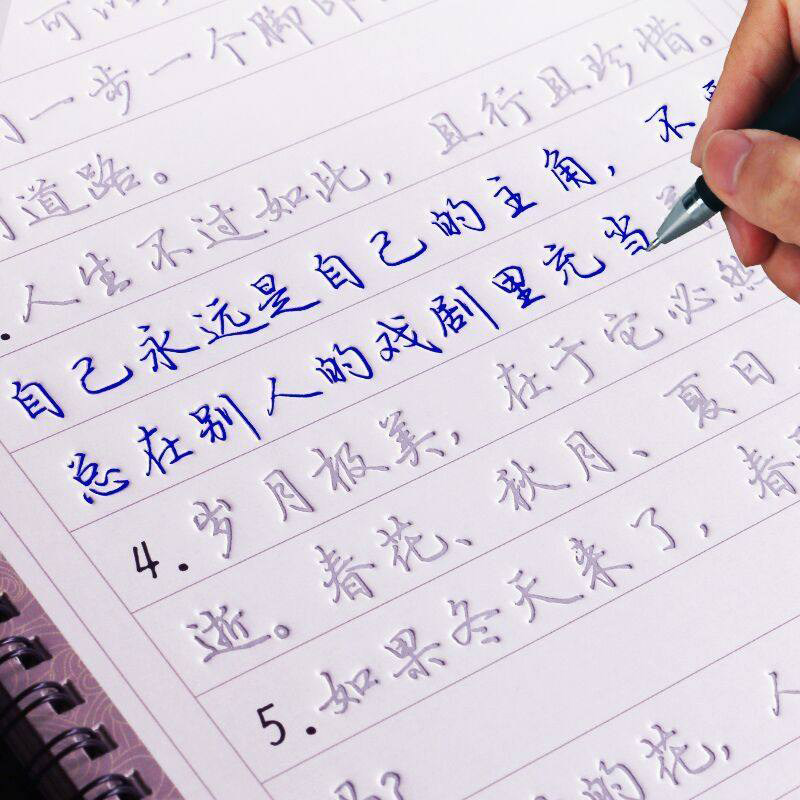 可以
一步一个脚印
道路。
人生不过如此，且行且珍惜。
自己永远是自己的主角，不
总在别人的戏剧里充当
4.岁月极美，在于它必然
逝。春花、秋月、夏日
5.如果冬天来了，春
的花，人